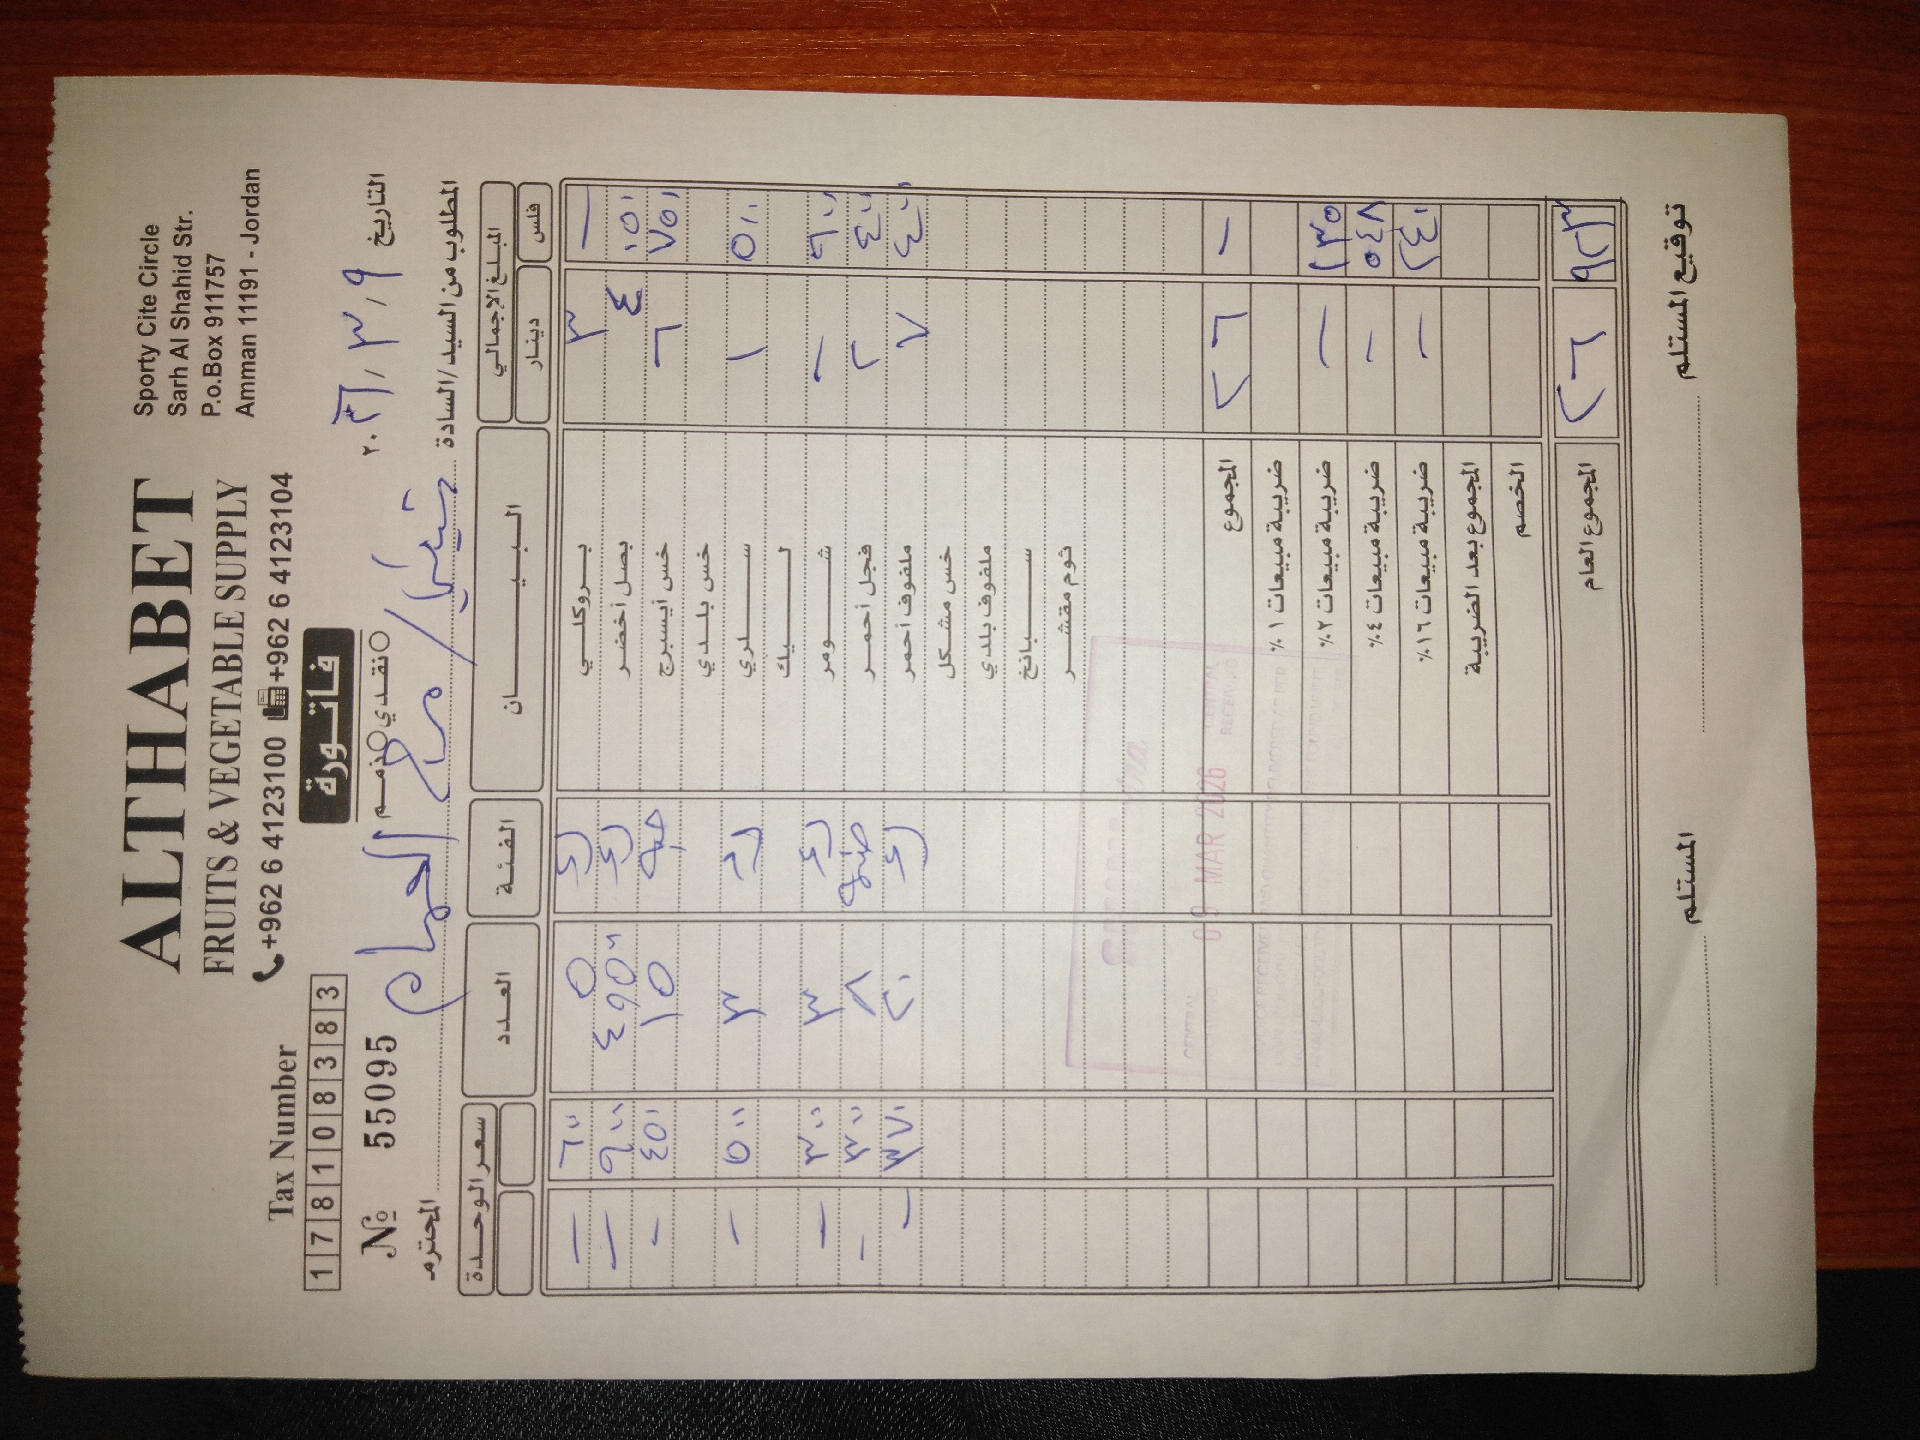 ALTHABET
FRUITS & VEGETABLE SUPPLY
+962 6 4123100 +962 6 4123104
Sporty Cite Circle
Sarh Al Shahid Str.
P.o.Box 911757
Amman 11191 - Jordan
Tax Number
1 7 8 1 0 8 3 8 3
فاتورة
نقدي ذمم
№ 55095
التاريخ ٩ / ٣ / ٢٠٢٦
المطلوب من السيد/السادة
المحترم
المبلغ الإجمالي البيـــــان الفئة العدد سعر الوحدة
فلس دينار
— ٣ بروكلي ٥ ٦٠٠ —
١٥٠ ٤ بصل أخضر ٩٠٠ —
٧٥٠ ٦ خس أيسبرج حبة ١٥ ٤٥٠ -
خس بلدي
٥٠٠ ١ سلري ٣ ٥٠٠ -
ليك
٩٠٠ — شومر ٣ ٣٠٠ —
٤٠٠ ٢ فجل أحمر ٨ ٣٠٠ -
٤٠٠ ٧ ملفوف أحمر ٢٠ ٣٧٠ -
خس مشكل
ملفوف بلدي
سبانخ
ثوم مقشر
— ٢٦ المجموع
ضريبة مبيعات ١٪
— ضريبة مبيعات ٢٪
- ضريبة مبيعات ٤٪
- ضريبة مبيعات ١٦٪
المجموع بعد الضريبة
الخصم
٩٢٣ ٢٦ المجموع العام
CENTRAL
RECEIVING
09 MAR 2026
توقيع المستلم
المستلم